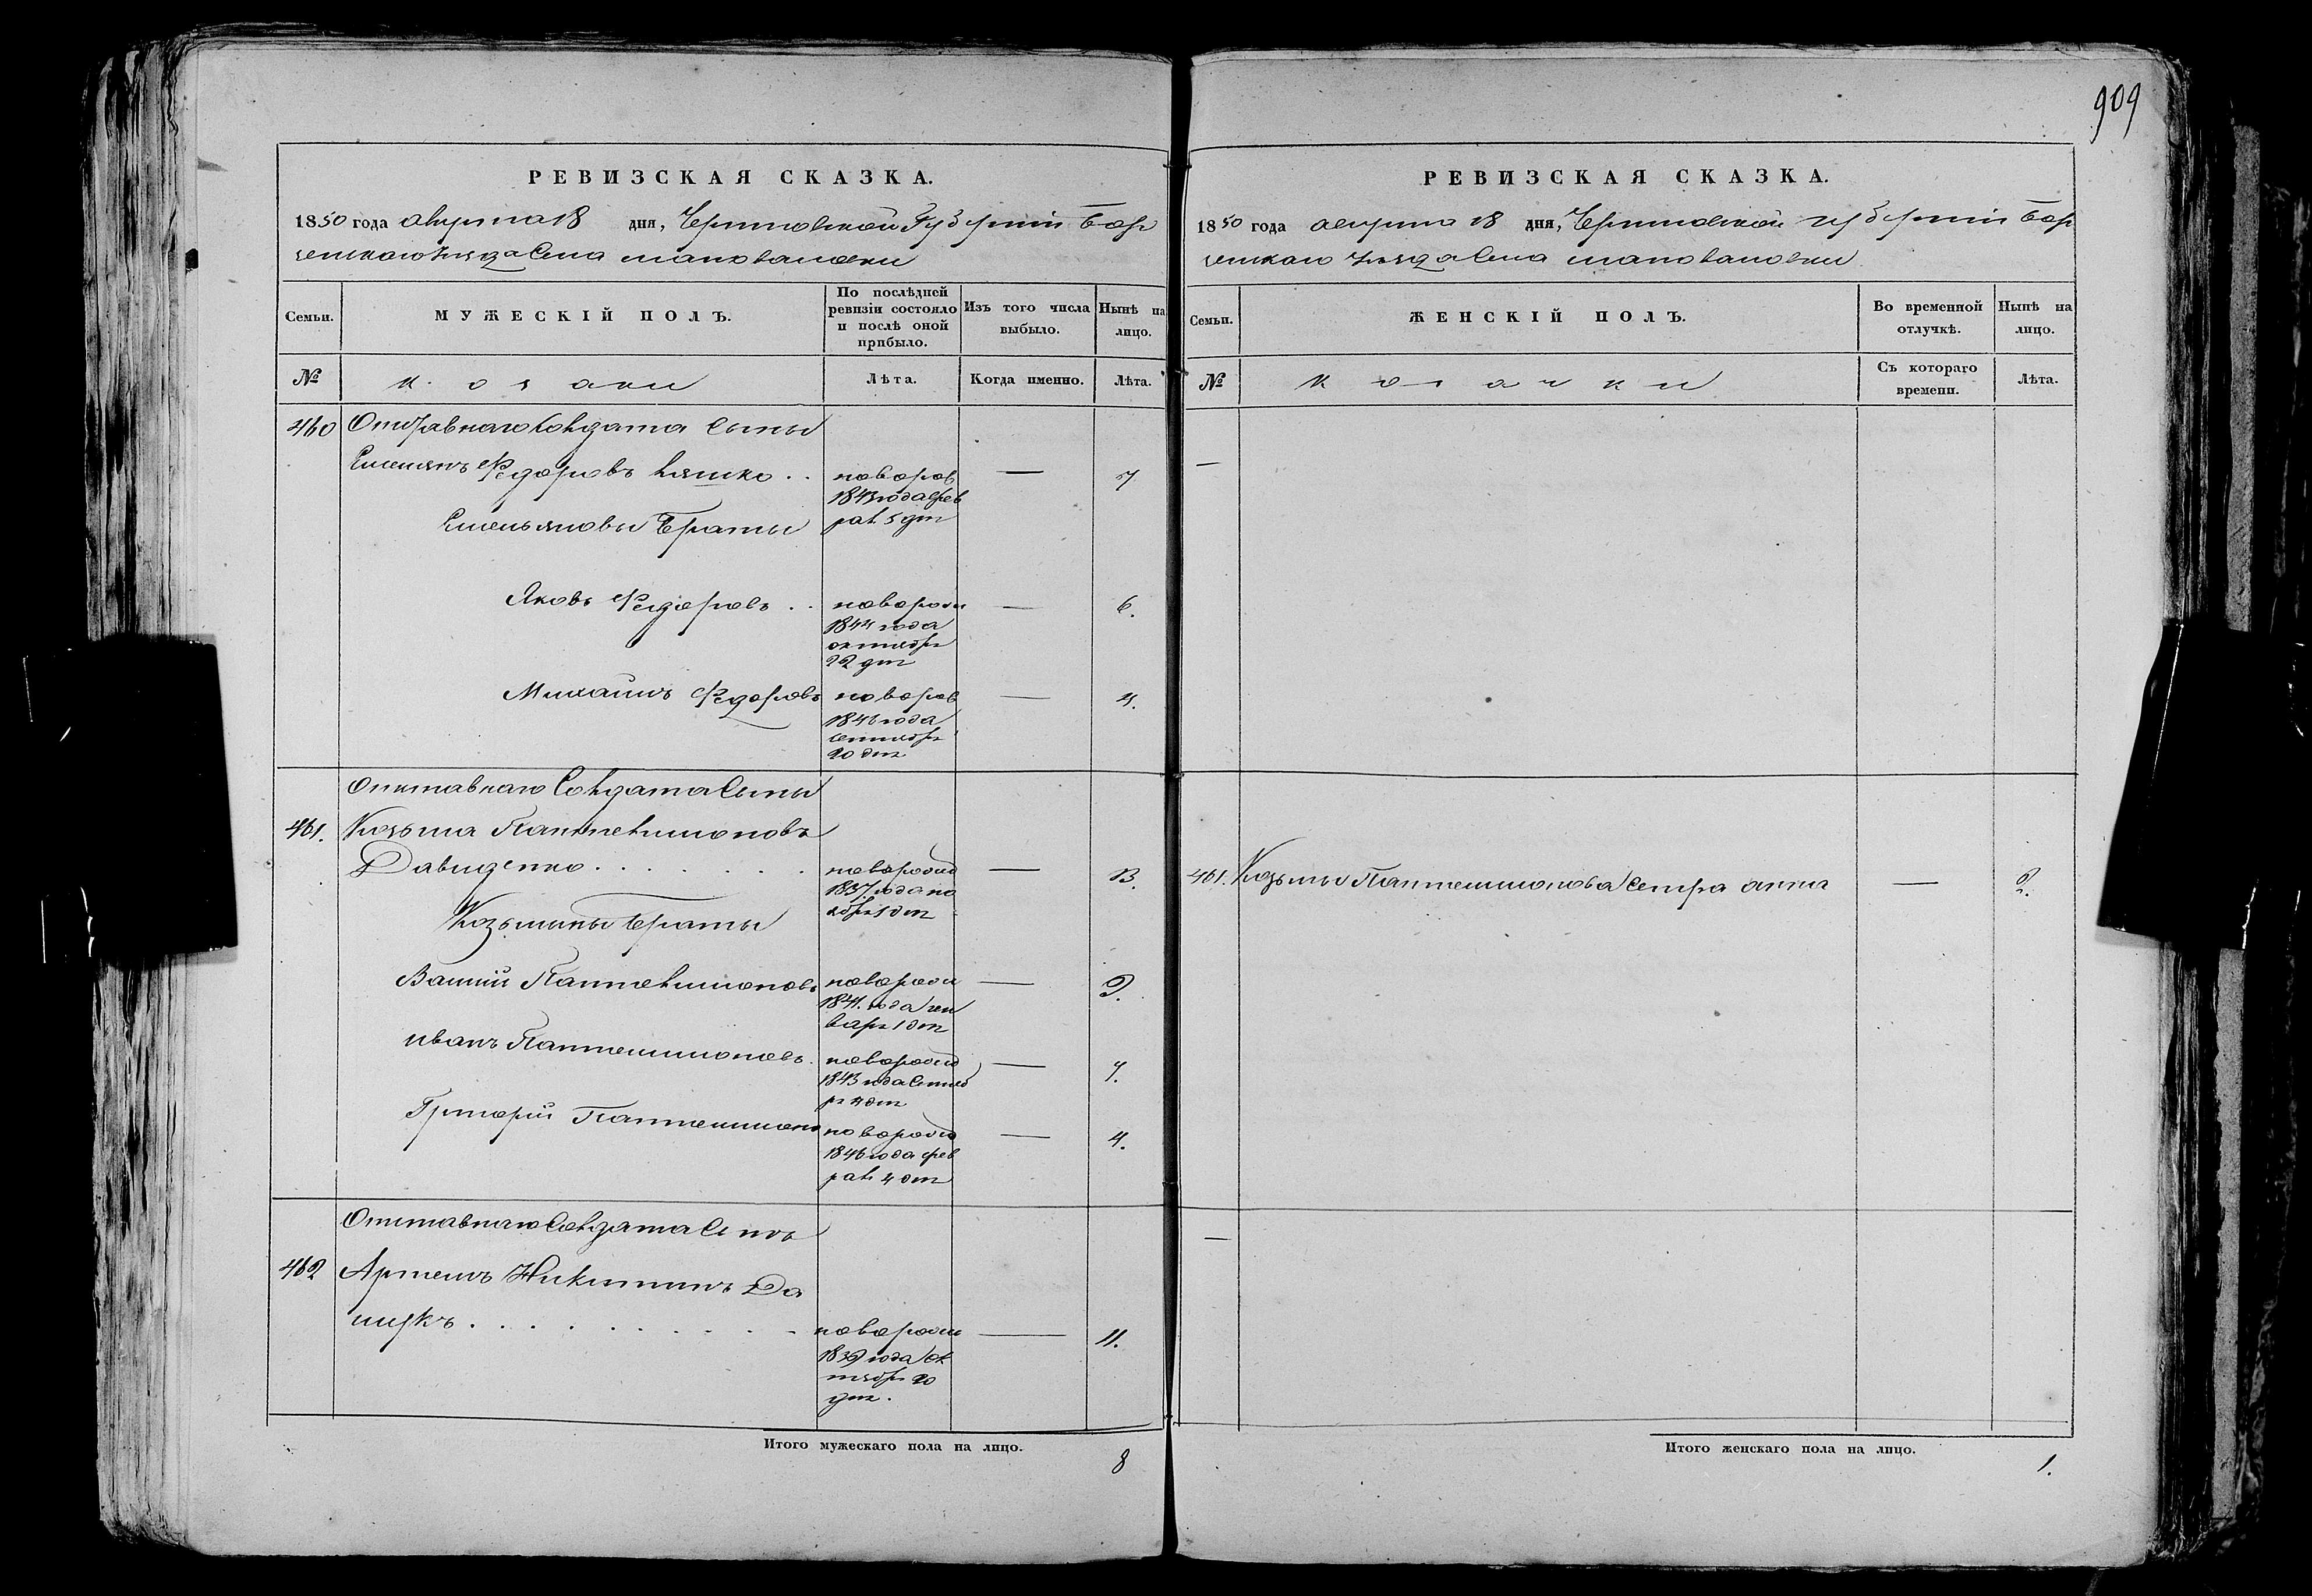 909
РЕВИЗСКАЯ СКАЗКА.
1850 года августа 18 дня, Черниговской Губернии Бор
зенскаго уезда Села
Семьи.
МУЖЕСКІЙ ПОЛЪ.
По послѣдней ревизіи состояло и послѣ оной прибыло.
Изъ того числа выбыло.
Нынѣ на лицо.
№
козаки
Лѣта.
Когда именно.
Лѣта.
460 Отставнаго Солдата Сыны
Емельянъ Федоровъ Ляшко . . новорож — 7
1843 года фев
рал. 5 дня
Емельяновы Браты
Яковъ Федоровъ . . новорожд — 6.
1844 года
октября
22 дня
Михаилъ Федоровъ новорож — 4.
1846 года
сентябр
20 дня
Отставнаго Солдата Сыны
461. Козьма Пантелимоновъ
Давиденко . . . . . . . новорожд — 13.
1837 года но
ября 1 дня
Козьмины Браты
Василий Пантелимоновъ новорожд — 9.
1841. года ген
варя 1 дня
Иванъ Пантелимоновъ. новорожд — 7.
1843 года Сентяб
ря 4 дня
Григорій Пантелимоно новорожд — 4.
1846 года фев
рал 4 дня
Отставнаго Солдата Сынъ
462 Артемъ Никитинъ Да
. . . . . . . . . новорожд — 11.
1839 года Ок
тября 20
дня.
Итого мужескаго пола на лицо.
8
РЕВИЗСКАЯ СКАЗКА.
1850 года августа 18 дня, Черниговской губернии Бор
зенскаго уезда Села
Семьи.
ЖЕНСКІЙ ПОЛЪ.
Во временной отлучкѣ.
Нынѣ на лицо.
№
козачки
Съ котораго времени.
Лѣта.
—
461. Козьмы Пантелимонова Сестра анна —
—
Итого женскаго пола на лицо.
1.